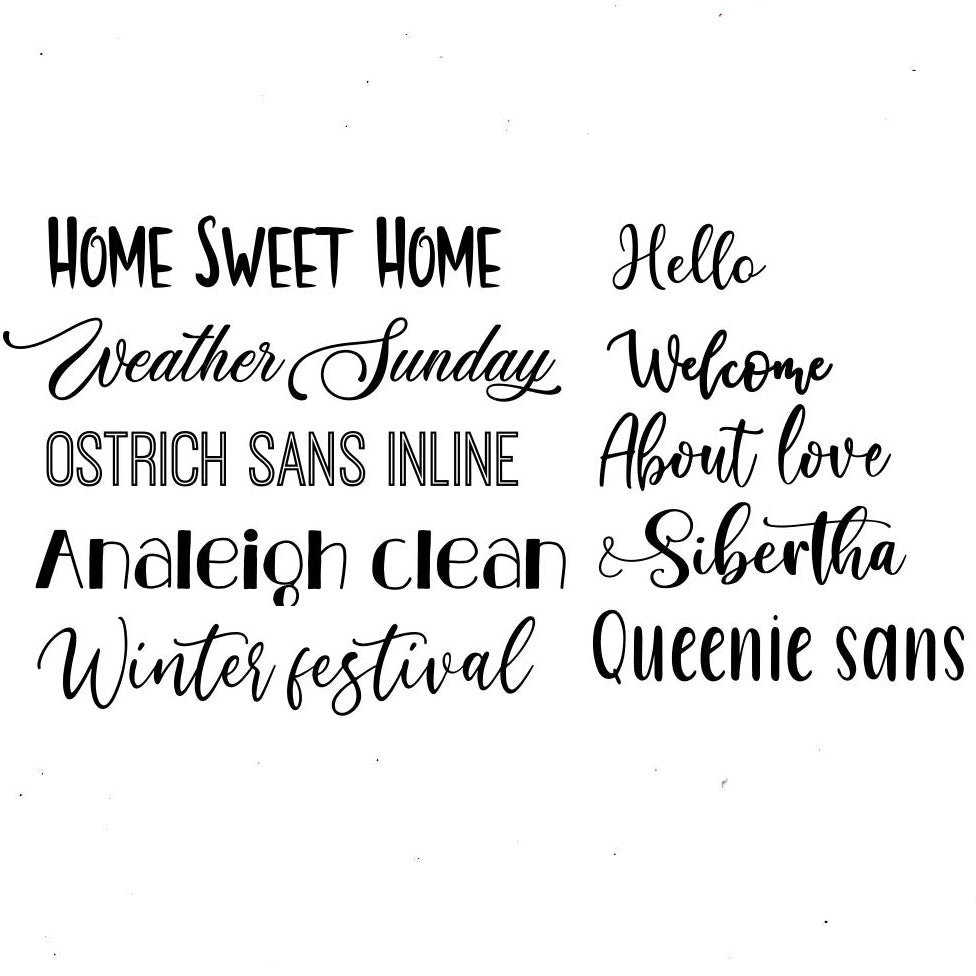 HOME SWEET HOME
Weather Sunday
OSTRICH SANS INLINE
Analeigh clean
Winter festival
Hello
Welcome
About love
Sibertha
Queenie sans